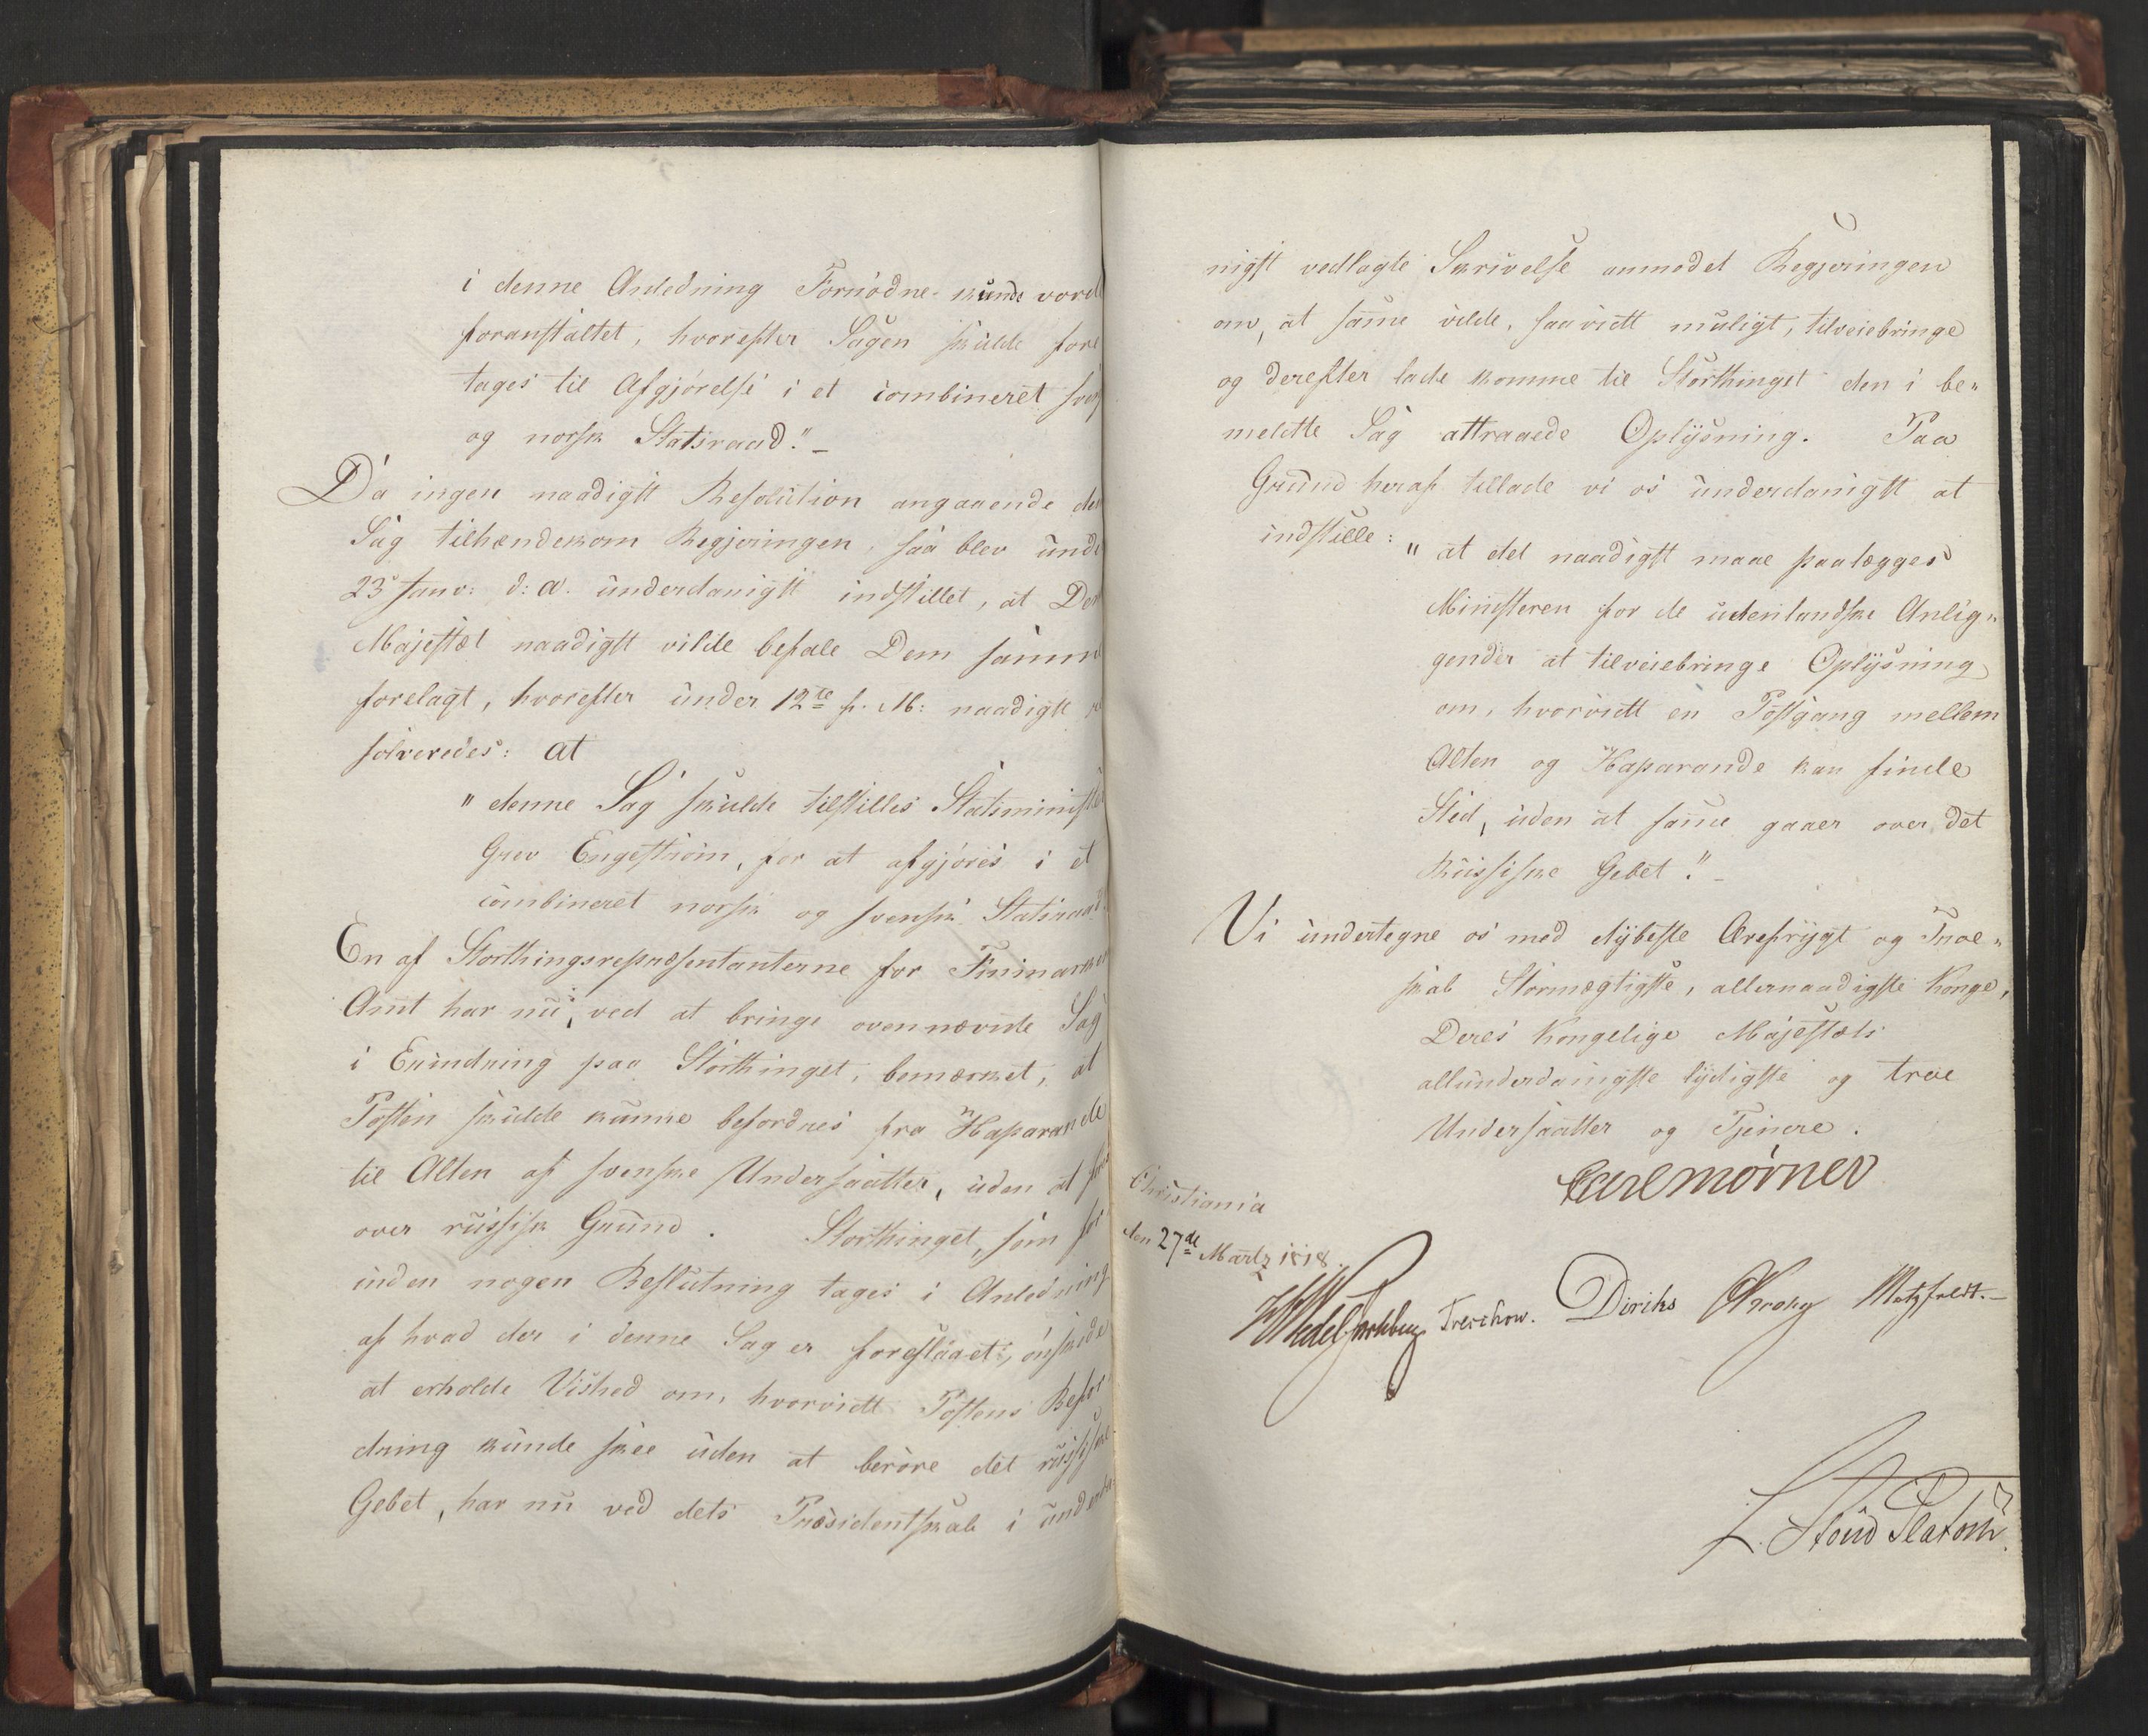 i denne Anledning Fornødne kunde vord
foranstaltet, hvorefter Sagen skulde fore
tages til Afgjørelse i et combineret sven
og norsk Statsraad." _
Da ingen naadigst Resolution angaaende den
Sag tilhændekom Regjeringen, saa blev unde
23 Janv: d: A. underdanigst indstillet, at Der
Majestæt naadigst vilde befale Dem samm
forelagt, hvorefter under 12te f. M: naadigst re
solveredes: at
" denne Sag skulde tilstilles Statsminister
Grev Engestrøm, for at afgjøres i et
combineret norsk og svensk Statsraad
En af Storthingsrepræsentanterne for Finmarken
Amt har nu, ved at bringe ovennævnte Sag
i Erindring paa Storthinget, bemærket, at
Posten skulde kunne befordres fra Haparande
til Alten af svenske Undersaatter, uden at
over russisk Grund. Storthinget, som før
inden nogen Beslutning tages i Anledning
af hvad der i denne Sag er foreslaaet, ønskede
at erholde Vished om, hvorvidt Postens Befor
dring kunde skee uden at berøre det russiske
Gebet, har nu ved dets Præsidentskab i underda
nigst vedlagte Skrivelse anmodet Regjeringen
om, at samme vilde, saavidt muligt, tilveiebringe
og derefter lade komme til Storthinget den i be"
meldte Sag attraaede Oplysning. Paa
Grund heraf tillade vi os underdanigst at
indstille:
" at det naadigst maae paalægges
Ministeren for de udenlandske Anlig"
gender at tilveiebringe Oplysning
om, hvorvidt en Postgang mellem
Alten og Haparande kan finde
Sted, uden at samme gaaer over det
Russiske Gebet". _
Vi undertegne os med dybeste Ærefrygt og Troe"
skab Stormægtigste, allernaadigste Konge,
Deres Kongelige Majestæts
allunderdanigste lydigste og troe
Undersaatter og Tjenere.
Carl Mørner
Christiania
den 27de Martz 1818.
HWedel Jarlsberg Treschow. Diriks Krohg Motzfeldt. _
L. Stoud Platou.